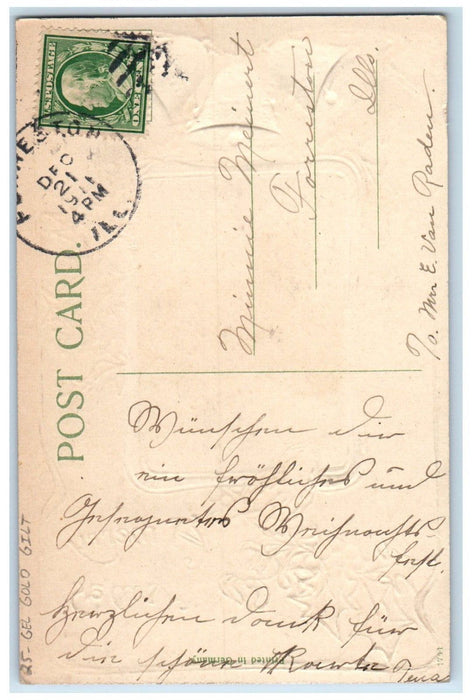 POST CARD.
U.S. POSTAGE
ONE CENT
DEC
21
1911
4 PM
ILL.
Minnie Meinert
Forreston
Ills.
℅. Mrs E. Van Raden.
Wünschen dir
ein fröhliches und
Gesegnetes Weihnachts-
fest.
Herzlichen dank für
die schöne Kaarte
Tena
Printed in Germany
25- GEL GOLD GILT